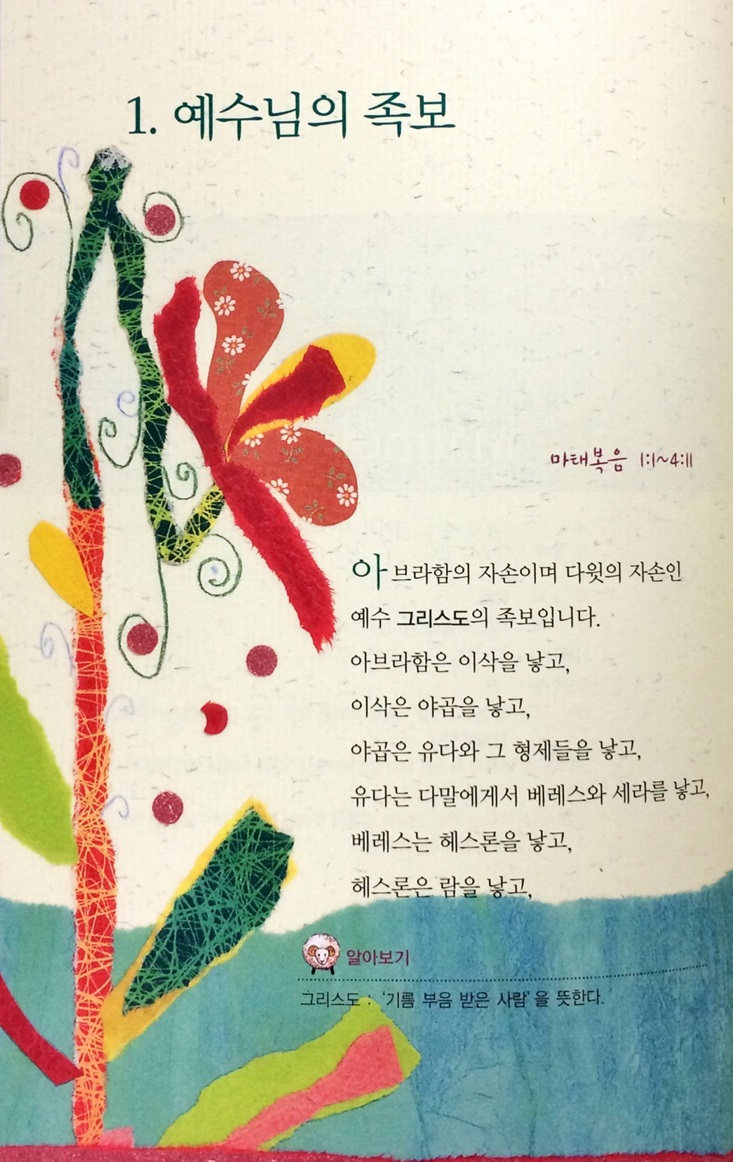 1. 예수님의 족보
마태복음 1:1~4:11
아브라함의 자손이며 다윗의 자손인
예수 그리스도의 족보입니다.
아브라함은 이삭을 낳고,
이삭은 야곱을 낳고,
야곱은 유다와 그 형제들을 낳고,
유다는 다말에게서 베레스와 세라를 낳고,
베레스는 헤스론을 낳고,
헤스론은 람을 낳고,
알아보기
그리스도 : '기름 부음 받은 사람'을 뜻한다.